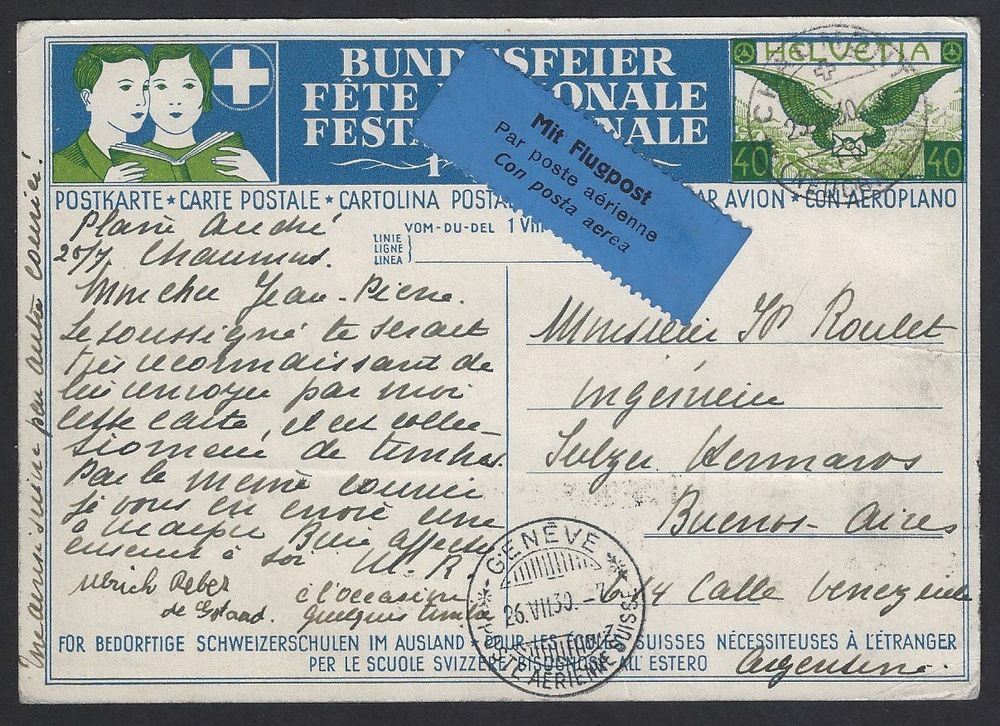 BUNDESFEIER
FÊTE NATIONALE
FESTA NAZIONALE
HELVETIA
40 40
Mit Flugpost
Par poste aérienne
Con posta aerea
POSTKARTE ★ CARTE POSTALE ★ CARTOLINA POSTALE
PAR AVION ★ CON AEROPLANO
VOM-DU-DEL 1 VIII
LINIE
LIGNE
LINEA
André
Chaumont.
Mon cher Jean-Pierre.
Le soussigné te serait
très reconnaissant de
lui envoyer par moi
cette carte, il est collec-
tionneur de timbres.
Par le même courrier
je vous en envoie une
à
M. R.
Ulrich Reber
de Gstaad.
à l'occasion
quelques timbres
par autre courrier
Monsieur JP Roulet
ingénieur
Sulzer Hermanos
Buenos-Aires
Calle Venezuela
Argentine.
GENÈVE
26.VII.30.-7
POSTE AÉRIENNE SUISSE
FÜR BEDÜRFTIGE SCHWEIZERSCHULEN IM AUSLAND ★ POUR LES ÉCOLES SUISSES NÉCESSITEUSES À L'ÉTRANGER
PER LE SCUOLE SVIZZERE BISOGNOSE ALL'ESTERO